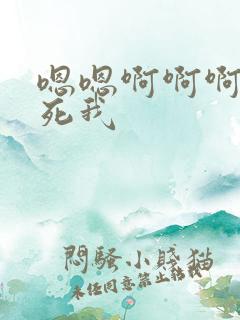 嗯嗯啊啊啊
死我
悶騷小賤猫
未経同意禁止転載